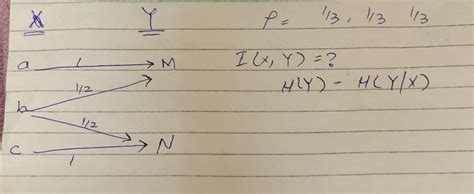 X Y P = 1/3, 1/3 1/3
a 1 M I(X, Y) = ?
1/2 H(Y) - H(Y/X)
b
1/2
c 1 N